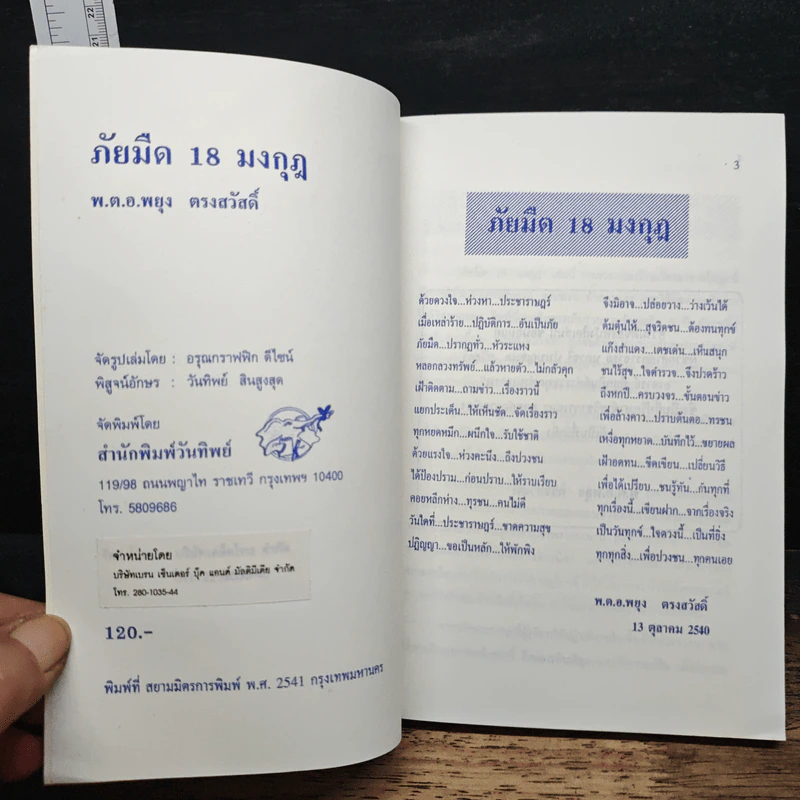 22
21
ภัยมืด 18 มงกุฎ
พ.ต.อ.พยุง ตรงสวัสดิ์
จัดรูปเล่มโดย : อรุณกราฟฟิก ดีไซน์
พิสูจน์อักษร : วันทิพย์ สินสูงสุด
จัดพิมพ์โดย
สำนักพิมพ์วันทิพย์
119/98 ถนนพญาไท ราชเทวี กรุงเทพฯ 10400
โทร. 5809686
จำหน่ายโดย
บริษัทเบรน เซ็นเตอร์ บุ๊ค แอนด์ มัลติมิเดีย จำกัด
โทร. 280-1035-44
120.-
พิมพ์ที่ สยามมิตรการพิมพ์ พ.ศ. 2541 กรุงเทพมหานคร
3
ภัยมืด 18 มงกุฎ
ด้วยดวงใจ...ห่วงหา...ประชาราษฎร์ จึงมิอาจ...ปล่อยวาง...ว่างเว้นได้
เมื่อเหล่าร้าย...ปฏิบัติการ...อันเป็นภัย ต้มตุ๋นให้...สุจริตชน...ต้องทนทุกข์
ภัยมืด...ปรากฏทั่ว...หัวระแหง แก๊งสำแดง...เดชเด่น...เห็นสนุก
หลอกลวงทรัพย์...แล้วหายตัว...ไม่กลัวคุก ชนไร้สุข...ใจตำรวจ...จึงปวดร้าว
เฝ้าติดตาม...ถามข่าว...เรื่องราวนี้ ถึงหกปี...ครบวงจร...ขั้นตอนข่าว
แยกประเด็น...ให้เห็นชัด...ขัดเรื่องราว เพื่อล้างคาว...ปราบต้นตอ...ทรชน
ทุกหยดหมึก...ผนึกใจ...รับใช้ชาติ เหงื่อทุกหยาด...บันทึกไว้...ขยายผล
ด้วยแรงใจ...ห่วงคะนึง...ถึงปวงชน เฝ้าอดทน...ขีดเขียน...เปลี่ยนวิธี
ได้ป้องปราม...ก่อนปราบ...ให้ราบเรียบ เพื่อได้เปรียบ...ชนรู้ทัน...กันทุกที่
คอยหลีกห่าง...ทุรชน...คนไม่ดี ทุกเรื่องนี้...เขียนฝาก...จากเรื่องจริง
วันใดที่...ประชาราษฎร์...ขาดความสุข เป็นวันทุกข์...ใจดวงนี้...เป็นที่ยิ่ง
ปฏิญญา...ขอเป็นหลัก...ให้พักพิง ทุกทุกสิ่ง...เพื่อปวงชน...ทุกคนเอย
พ.ต.อ.พยุง ตรงสวัสดิ์
13 ตุลาคม 2540